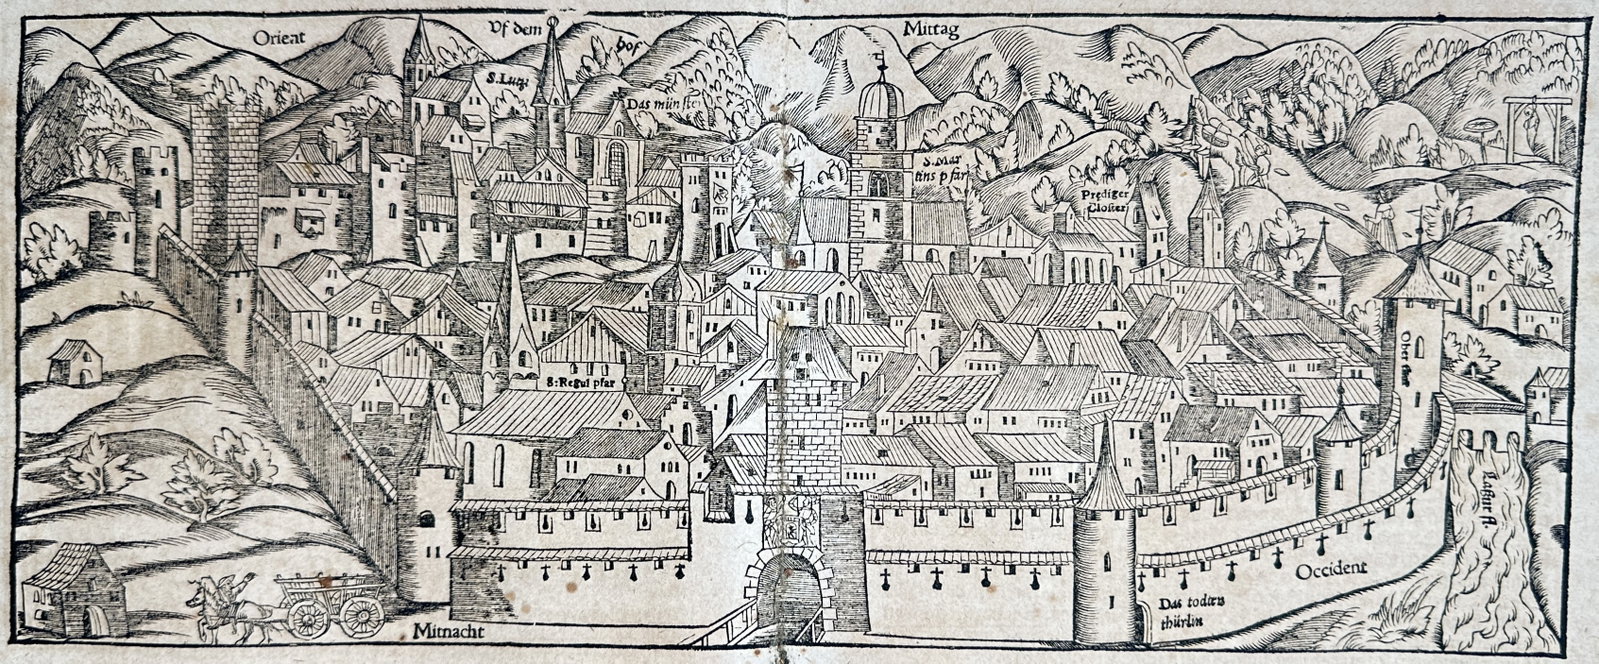 Orient
Vf dem
hof
Mittag
S. Lutz
Das münster
S. Mar
tins pfar
Prediger
Closter
S: Regul pfar
Ober thor
Occident
Das todten
thürlin
Mitnacht